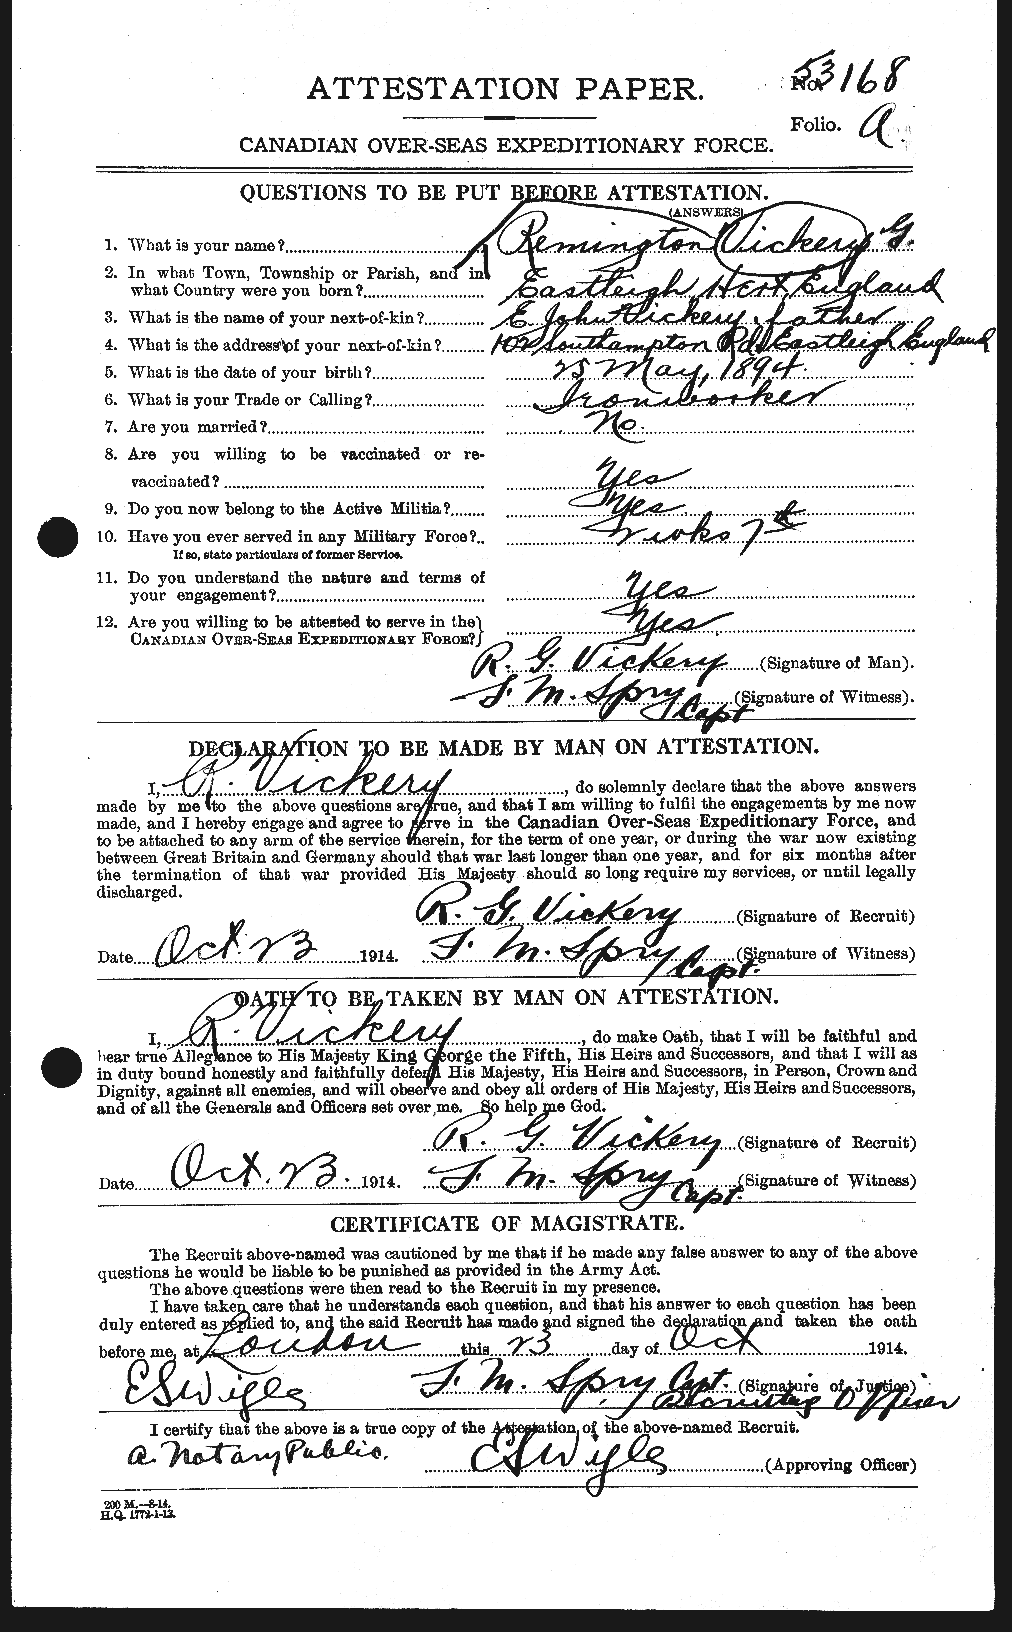 ATTESTATION PAPER.
No. 53168
Folio. A.
CANADIAN OVER-SEAS EXPEDITIONARY FORCE.
QUESTIONS TO BE PUT BEFORE ATTESTATION.
(ANSWERS)
1. What is your name? Remington Vickery G.
2. In what Town, Township or Parish, and in
what Country were you born? Eastleigh, England
3. What is the name of your next-of-kin? E. John Vickery, father
4. What is the address of your next-of-kin? 102 Southampton Rd, Eastleigh England
5. What is the date of your birth? 25 May, 1894.
6. What is your Trade or Calling? Ironworker
7. Are you married? No.
8. Are you willing to be vaccinated or re-
vaccinated? Yes
9. Do you now belong to the Active Militia? Yes
10. Have you ever served in any Military Force? 7th
If so, state particulars of former Service.
11. Do you understand the nature and terms of
your engagement? Yes
12. Are you willing to be attested to serve in the
CANADIAN OVER-SEAS EXPEDITIONARY FORCE? Yes
R. G. Vickery (Signature of Man).
F. M. Spry Capt (Signature of Witness).
DECLARATION TO BE MADE BY MAN ON ATTESTATION.
I, R. Vickery, do solemnly declare that the above answers
made by me to the above questions are true, and that I am willing to fulfil the engagements by me now
made, and I hereby engage and agree to serve in the Canadian Over-Seas Expeditionary Force, and
to be attached to any arm of the service therein, for the term of one year, or during the war now existing
between Great Britain and Germany should that war last longer than one year, and for six months after
the termination of that war provided His Majesty should so long require my services, or until legally
discharged.
R. G. Vickery (Signature of Recruit)
Date Oct. 23 1914. F. M. Spry Capt. (Signature of Witness)
OATH TO BE TAKEN BY MAN ON ATTESTATION.
I, R. Vickery, do make Oath, that I will be faithful and
bear true Allegiance to His Majesty King George the Fifth, His Heirs and Successors, and that I will as
in duty bound honestly and faithfully defend His Majesty, His Heirs and Successors, in Person, Crown and
Dignity, against all enemies, and will observe and obey all orders of His Majesty, His Heirs and Successors,
and of all the Generals and Officers set over me. So help me God.
R. G. Vickery (Signature of Recruit)
Date Oct. 23. 1914. F. M. Spry Capt. (Signature of Witness)
CERTIFICATE OF MAGISTRATE.
The Recruit above-named was cautioned by me that if he made any false answer to any of the above
questions he would be liable to be punished as provided in the Army Act.
The above questions were then read to the Recruit in my presence.
I have taken care that he understands each question, and that his answer to each question has been
duly entered as replied to, and the said Recruit has made and signed the declaration and taken the oath
before me, at London this 23 day of Oct 1914.
E S Wigle F. M. Spry Capt. (Signature of Justice)
Recruiting Officer
I certify that the above is a true copy of the Attestation of the above-named Recruit.
A. Notary Public. E S Wigle (Approving Officer)
200 M.—8-14.
H.Q. 1772-1-13.